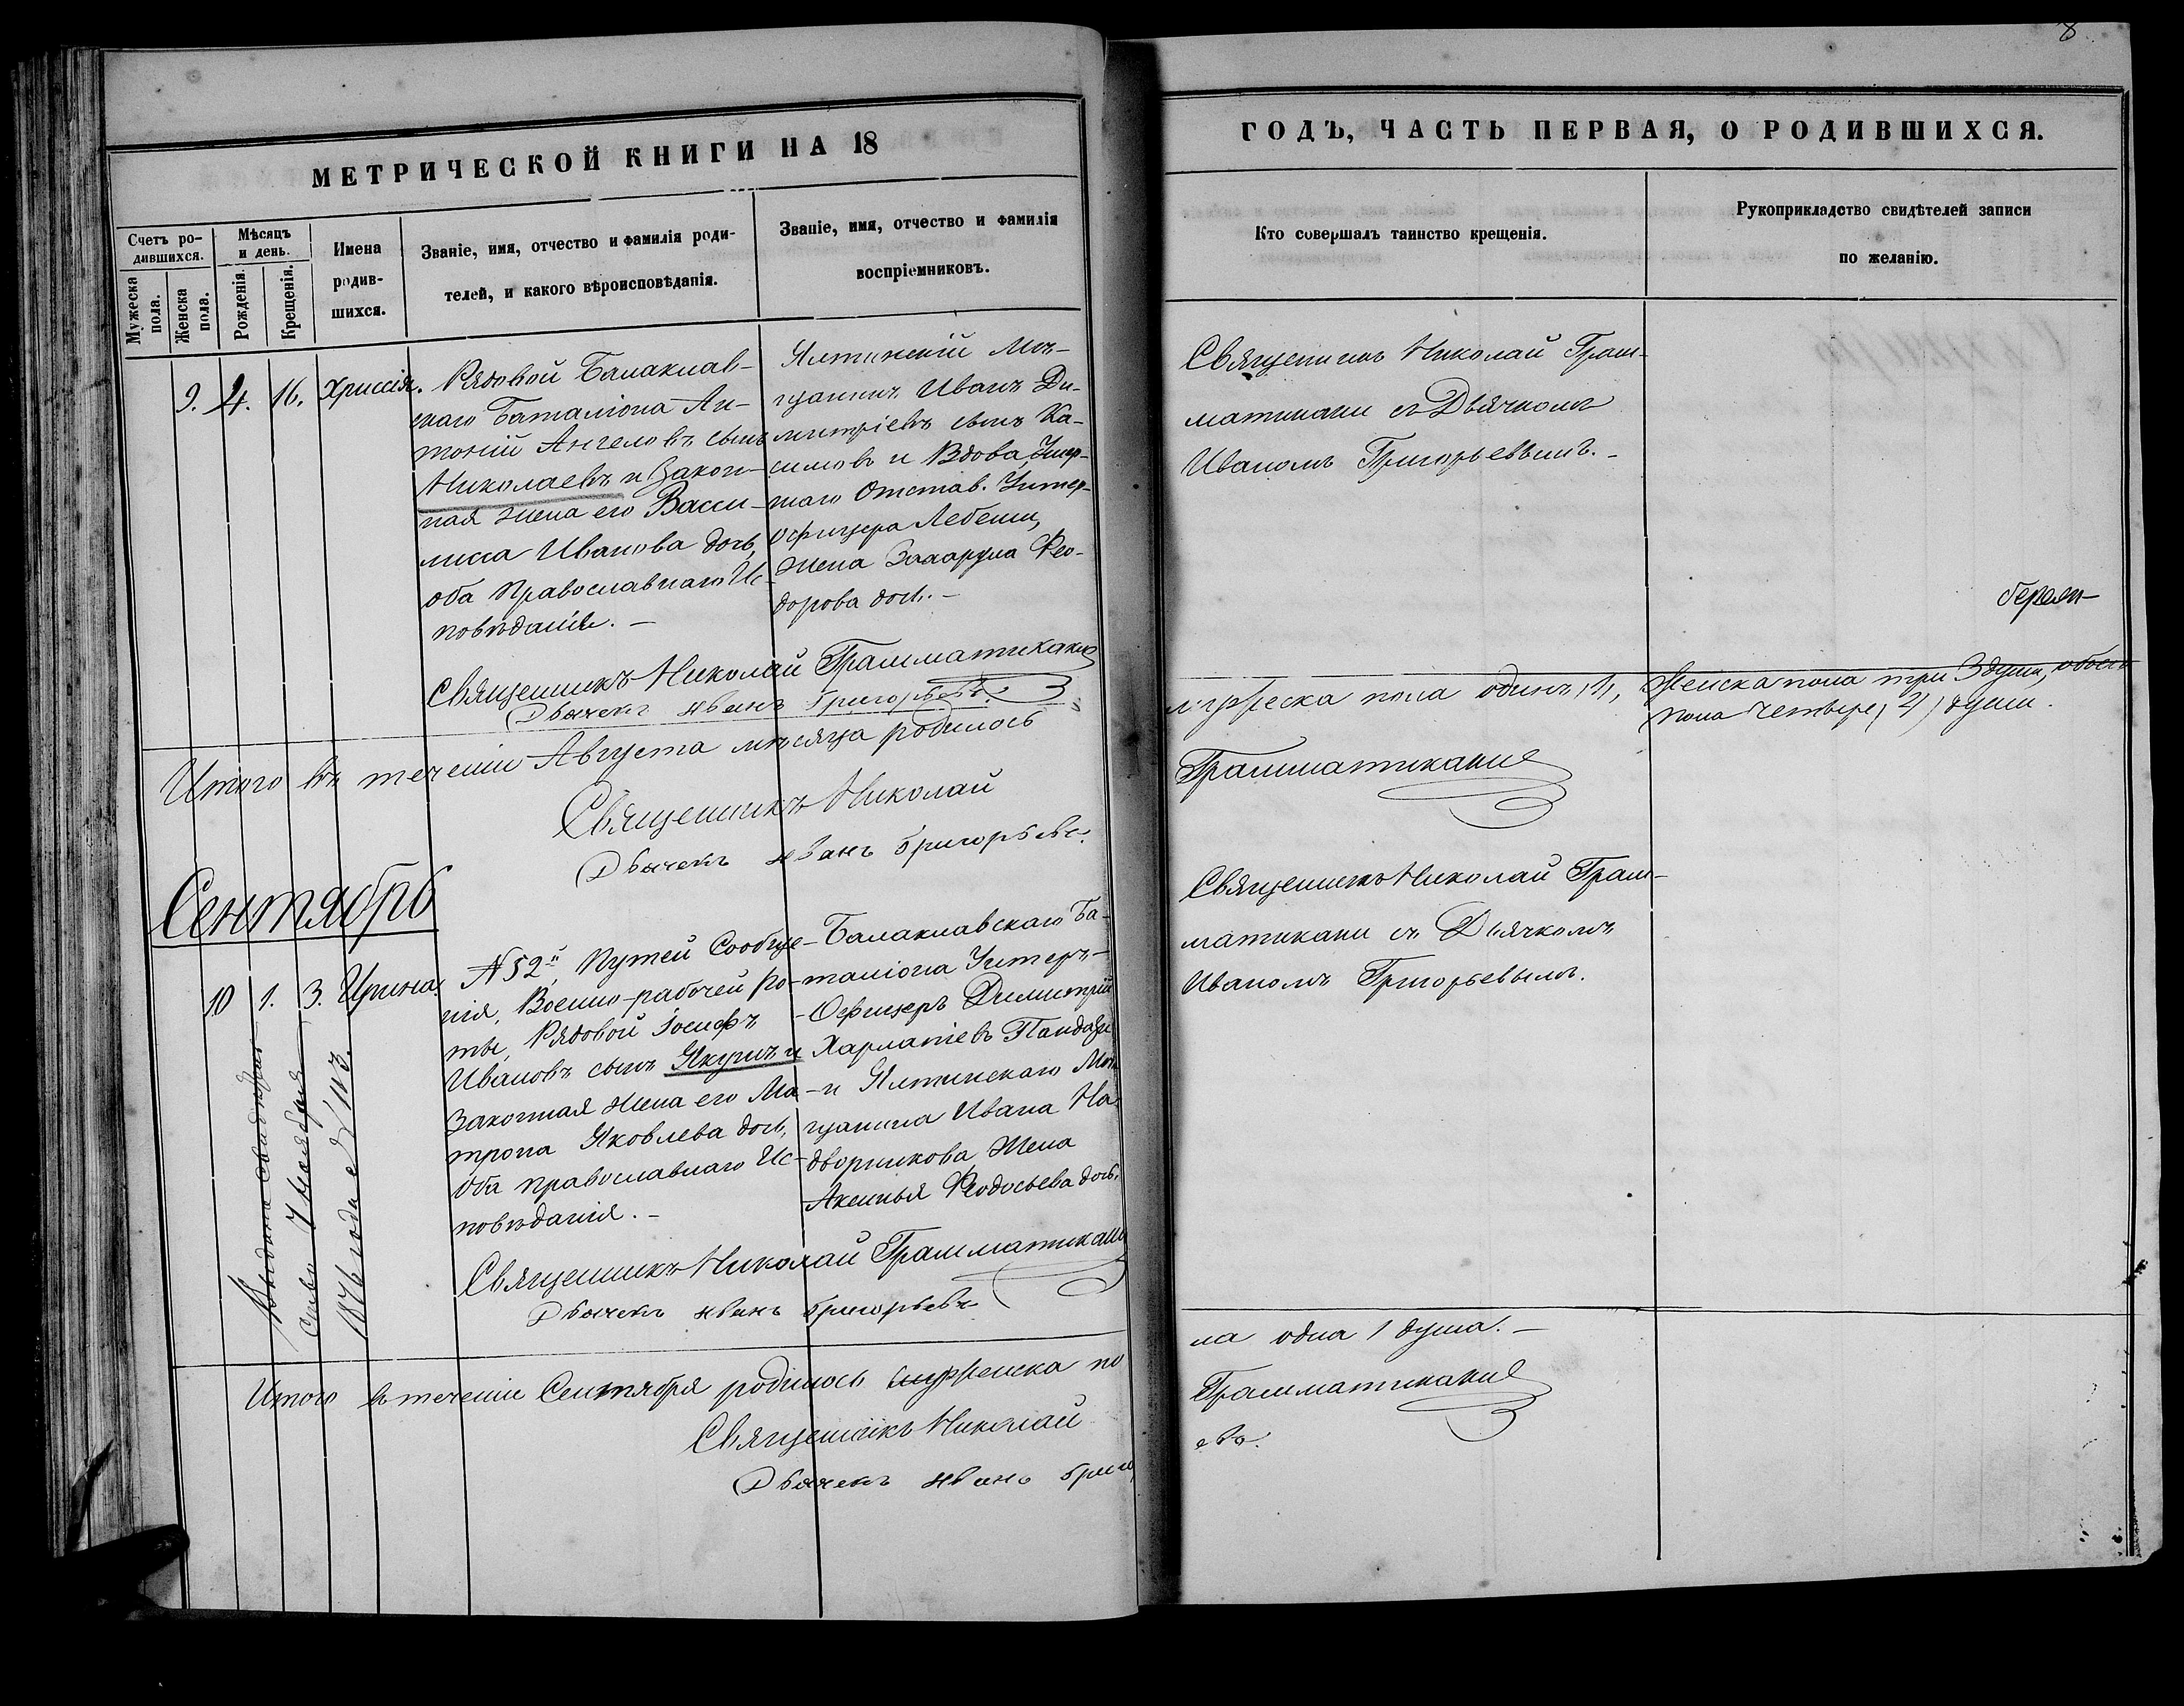 8
МЕТРИЧЕСКОЙ КНИГИ НА 18
ГОДЪ, ЧАСТЬ ПЕРВАЯ, О РОДИВШИХСЯ.
Счетъ ро-
дившихся.
Мужеска
пола.
Женска
пола.
Мѣсяцъ
и день.
Рожденія.
Крещенія.
Имена
родив-
шихся.
Званіе, имя, отчество и фамилія роди-
телей, и какого вѣроисповѣданія.
Званіе, имя, отчество и фамилія
воспріемниковъ.
Кто совершалъ таинство крещенія.
Рукоприкладство свидѣтелей записи
по желанію.
9. 4. 16. Хриссія.
Рядовой Балаклав-
скаго Баталіона Ан-
тоній Ангеловъ сынъ
Николаевъ и Закон-
ная жена его Васси-
лисса Иванова дочь,
оба Православнаго Ис-
повѣданія. -
Ялтинскій Мѣ-
щанинъ Иванъ Ди-
митріевъ сынъ Ка-
симовъ и Вдова, Умер-
шаго Отстав. Унтер-
офицера Лебеши,
Жена Феo-
дорова дочь. -
Священникъ Николай Грам-
матикаки съ Дьячкомъ
Иваномъ Григорьевымъ. -
Священникъ Николай Грамматикаки
Дьячекъ Иванъ Григорьевъ.
Итого въ теченіи Августа мѣсяца родилось
мужеска пола одинъ, 1, Женска пола три 3 души, обоего
пола четверо, 4, души.
Священникъ Николай
Грамматикаки
Дьячекъ Иванъ Григорьевъ.
Сентябрь
10 1. 3. Ирина.
№ 52й Путей Сообще-
нія, Военно-рабочей Ро-
ты, Рядовой Іосифъ
Ивановъ сынъ Якунъ и
Законная жена его Ма-
трона Яковлева дочь,
Оба православнаго Ис-
повѣданія. -
Балаклавскаго Ба-
таліона Унтеръ-
Офицеръ Димитрій
Харлатіевъ Пандази
и Ялтинскаго Мѣ-
щанина Ивана На-
дворникова Жена
Аксинья Феодосьева дочь.
Священникъ Николай Грам-
матикаки съ Дьячкомъ
Иваномъ Григорьевымъ.
Выдано свидѣтель-
ство 7 Ноября
1876 года № 113.
Священникъ Николай Грамматикаки
Дьячекъ Иванъ Григорьевъ
Итого въ теченіи Сентября родилось женска по
ла одна 1 душа. -
Священникъ Николай
Грамматикаки
Дьячекъ Иванъ Григор
евъ.